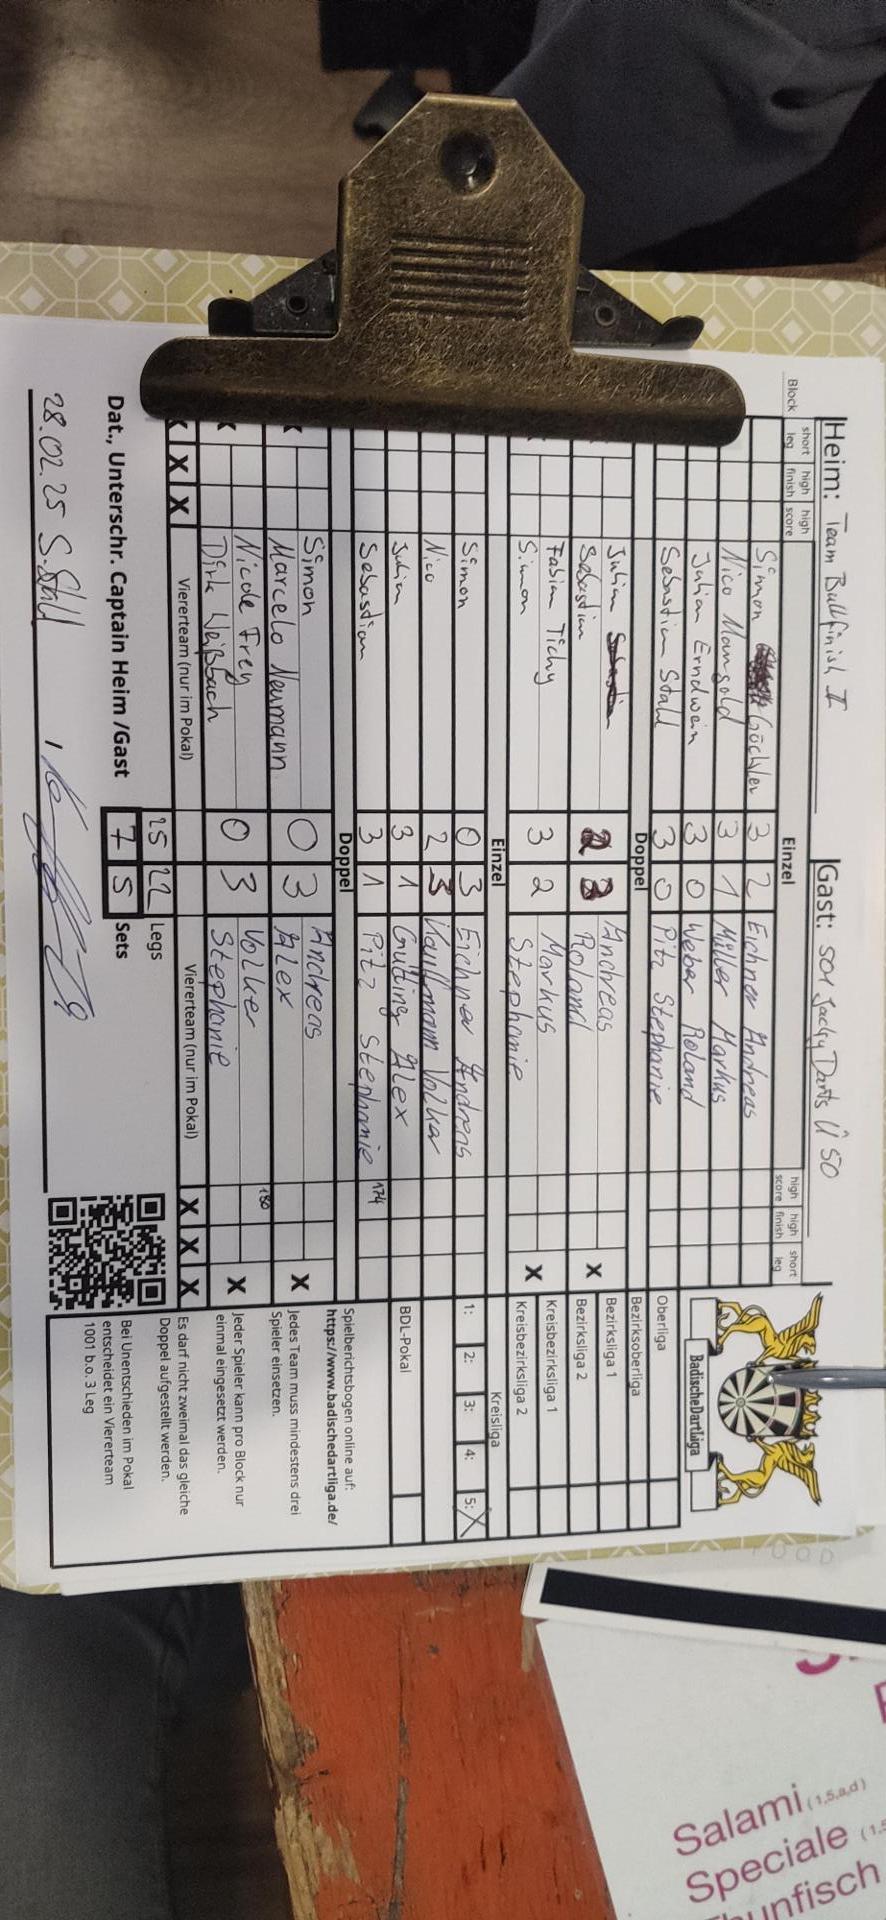 Heim: Team Bullfinish II Gast: 501 Jacky Darts Ü 50
Block short leg high finish high score Einzel high score high finish short leg
Simon Göckler 3 2 Eichner Andreas
Nico Mangold 3 1 Müller Markus
Julian Erndwein 3 0 Weber Roland
Sebastian Stahl 3 0 Pitz Stephanie
Doppel
Julian Andreas
Sebastian 2 3 Roland X
Fabian Tichy Markus
Simon 3 2 Stephanie X
Einzel
Simon 0 3 Eichner Andreas
Nico 2 3 Kaufmann Volker
Julian 3 1 Gutting Alex
Sebastian 3 1 Pitz Stephanie 174
Doppel
Simon Andreas
Marcelo Neumann 0 3 Alex X
Nicole Frey Volker 180
Dirk Weißbach 0 3 Stephanie X
X X Vierterteam (nur im Pokal) Viererteam (nur im Pokal) X X X
25 22 Legs
Dat., Unterschr. Captain Heim /Gast 7 5 Sets
28.02.25 S. Stahl /
BadischeDartliga
Oberliga
Bezirksoberliga
Bezirksliga 1
Bezirksliga 2
Kreisbezirksliga 1
Kreisbezirksliga 2
Kreisliga
1: 2: 3: 4: 5: X
BDL-Pokal
Spielberichtsbogen online auf:
https://www.badischedartliga.de/
Jedes Team muss mindestens drei
Spieler einsetzen.
Jeder Spieler kann pro Block nur
einmal eingesetzt werden.
Es darf nicht zweimal das gleiche
Doppel aufgestellt werden.
Bei Unentschieden im Pokal
entscheidet ein Viererteam
1001 b.o. 3 Leg
Salami (1,5,a,d)
Speciale